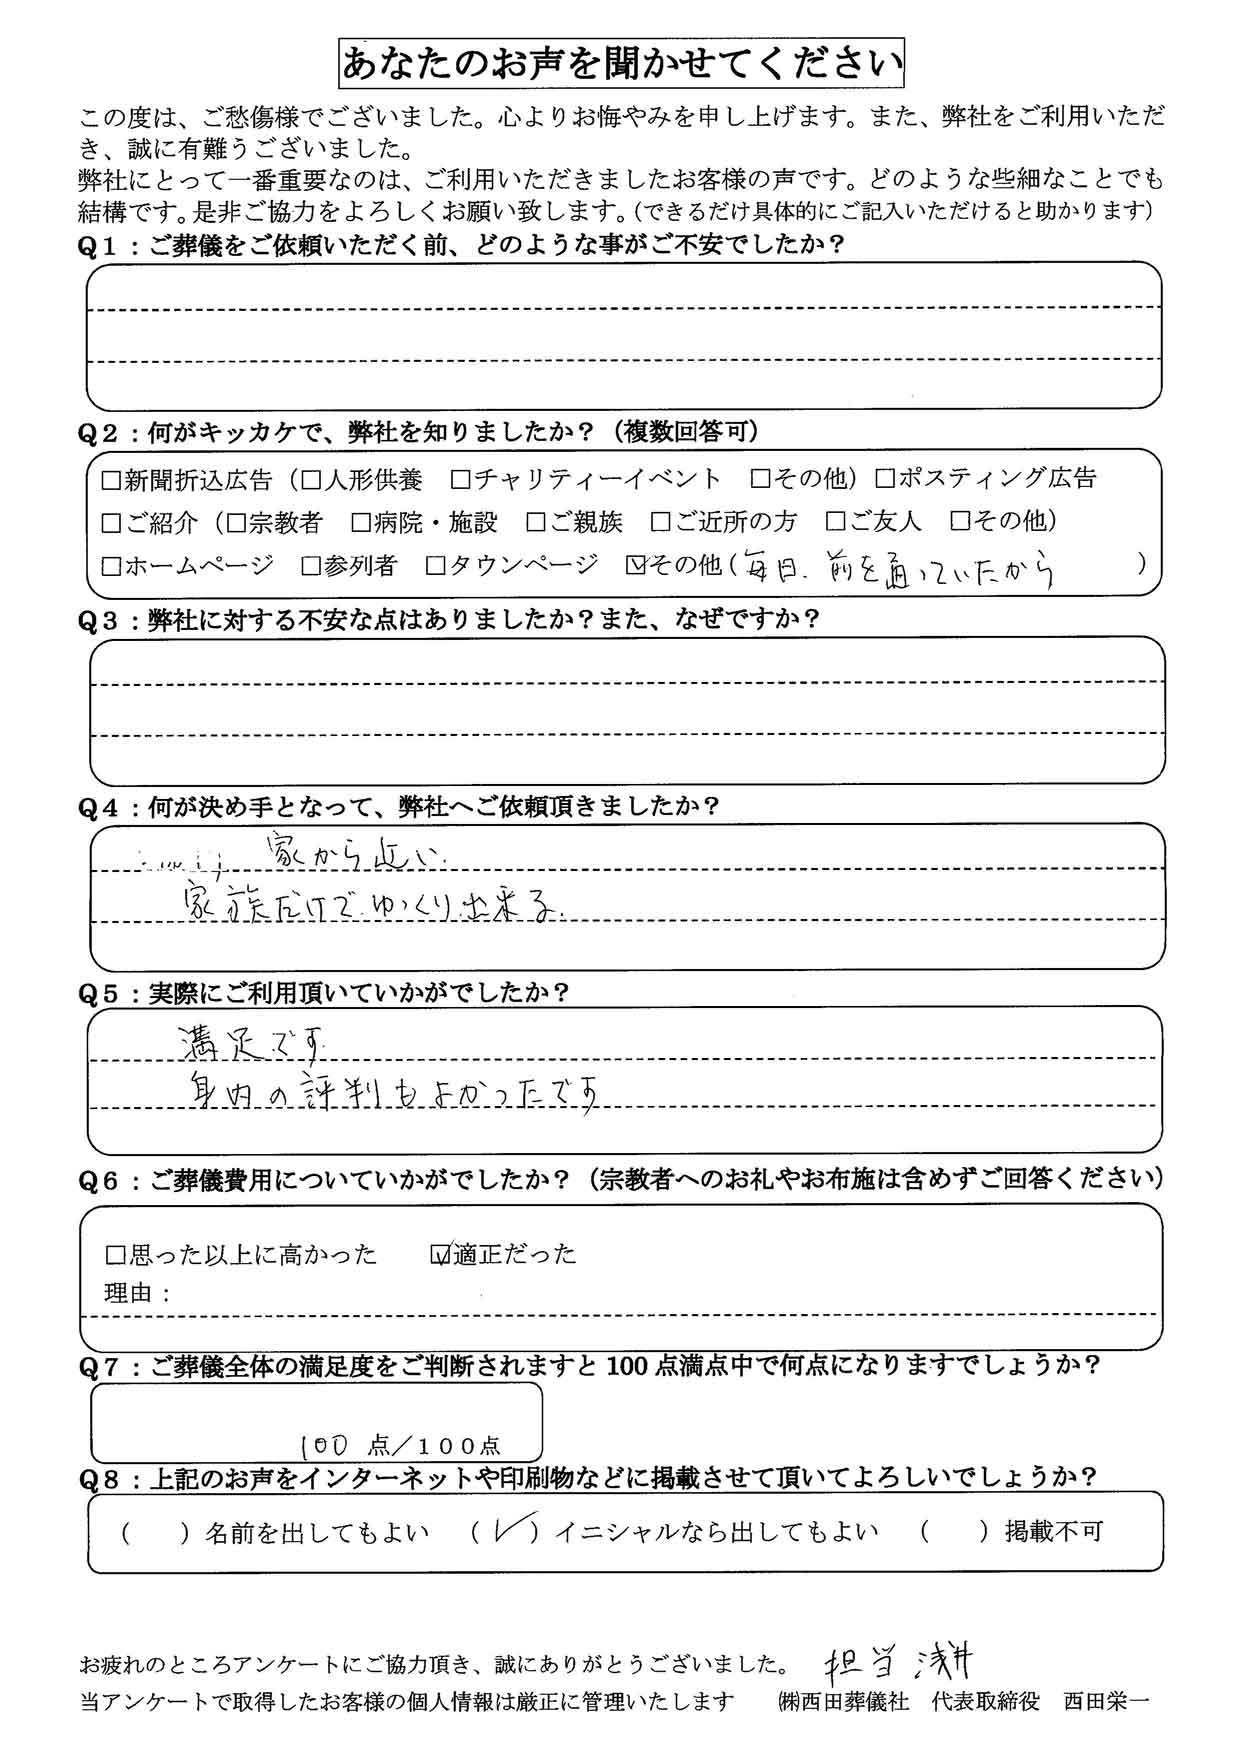 あなたのお声を聞かせてください
この度は、ご愁傷様でございました。心よりお悔やみを申し上げます。また、弊社をご利用いただ
き、誠に有難うございました。
弊社にとって一番重要なのは、ご利用いただきましたお客様の声です。どのような些細なことでも
結構です。是非ご協力をよろしくお願い致します。（できるだけ具体的にご記入いただけると助かります）
Q1：ご葬儀をご依頼いただく前、どのような事がご不安でしたか？
Q2：何がキッカケで、弊社を知りましたか？（複数回答可）
□新聞折込広告（□人形供養　□チャリティーイベント　□その他）□ポスティング広告
□ご紹介（□宗教者　□病院・施設　□ご親族　□ご近所の方　□ご友人　□その他）
□ホームページ　□参列者　□タウンページ　☑その他（毎日、前を通っていたから　）
Q3：弊社に対する不安な点はありましたか？また、なぜですか？
Q4：何が決め手となって、弊社へご依頼頂きましたか？
家から近い.
家族だけでゆっくり出来る.
Q5：実際にご利用頂いていかがでしたか？
満足です.
身内の評判もよかったです
Q6：ご葬儀費用についていかがでしたか？（宗教者へのお礼やお布施は含めずご回答ください）
□思った以上に高かった　☑適正だった
理由：
Q7：ご葬儀全体の満足度をご判断されますと100点満点中で何点になりますでしょうか？
100 点／１００点
Q8：上記のお声をインターネットや印刷物などに掲載させて頂いてよろしいでしょうか？
（　）名前を出してもよい　（✓）イニシャルなら出してもよい　（　）掲載不可
お疲れのところアンケートにご協力頂き、誠にありがとうございました。　担当 浅井
当アンケートで取得したお客様の個人情報は厳正に管理いたします　㈱西田葬儀社　代表取締役　西田栄一